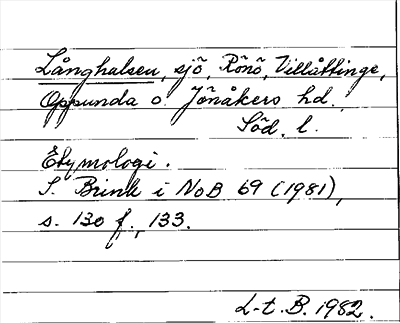 Långhalsen, sjö, Rönö, Villåttinge,
Oppunda o. Jönåkers hd.
Söd. l.
Etymologi.
S. Brink i NoB 69 (1981),
s. 130 f., 133.
L-t. B. 1982.